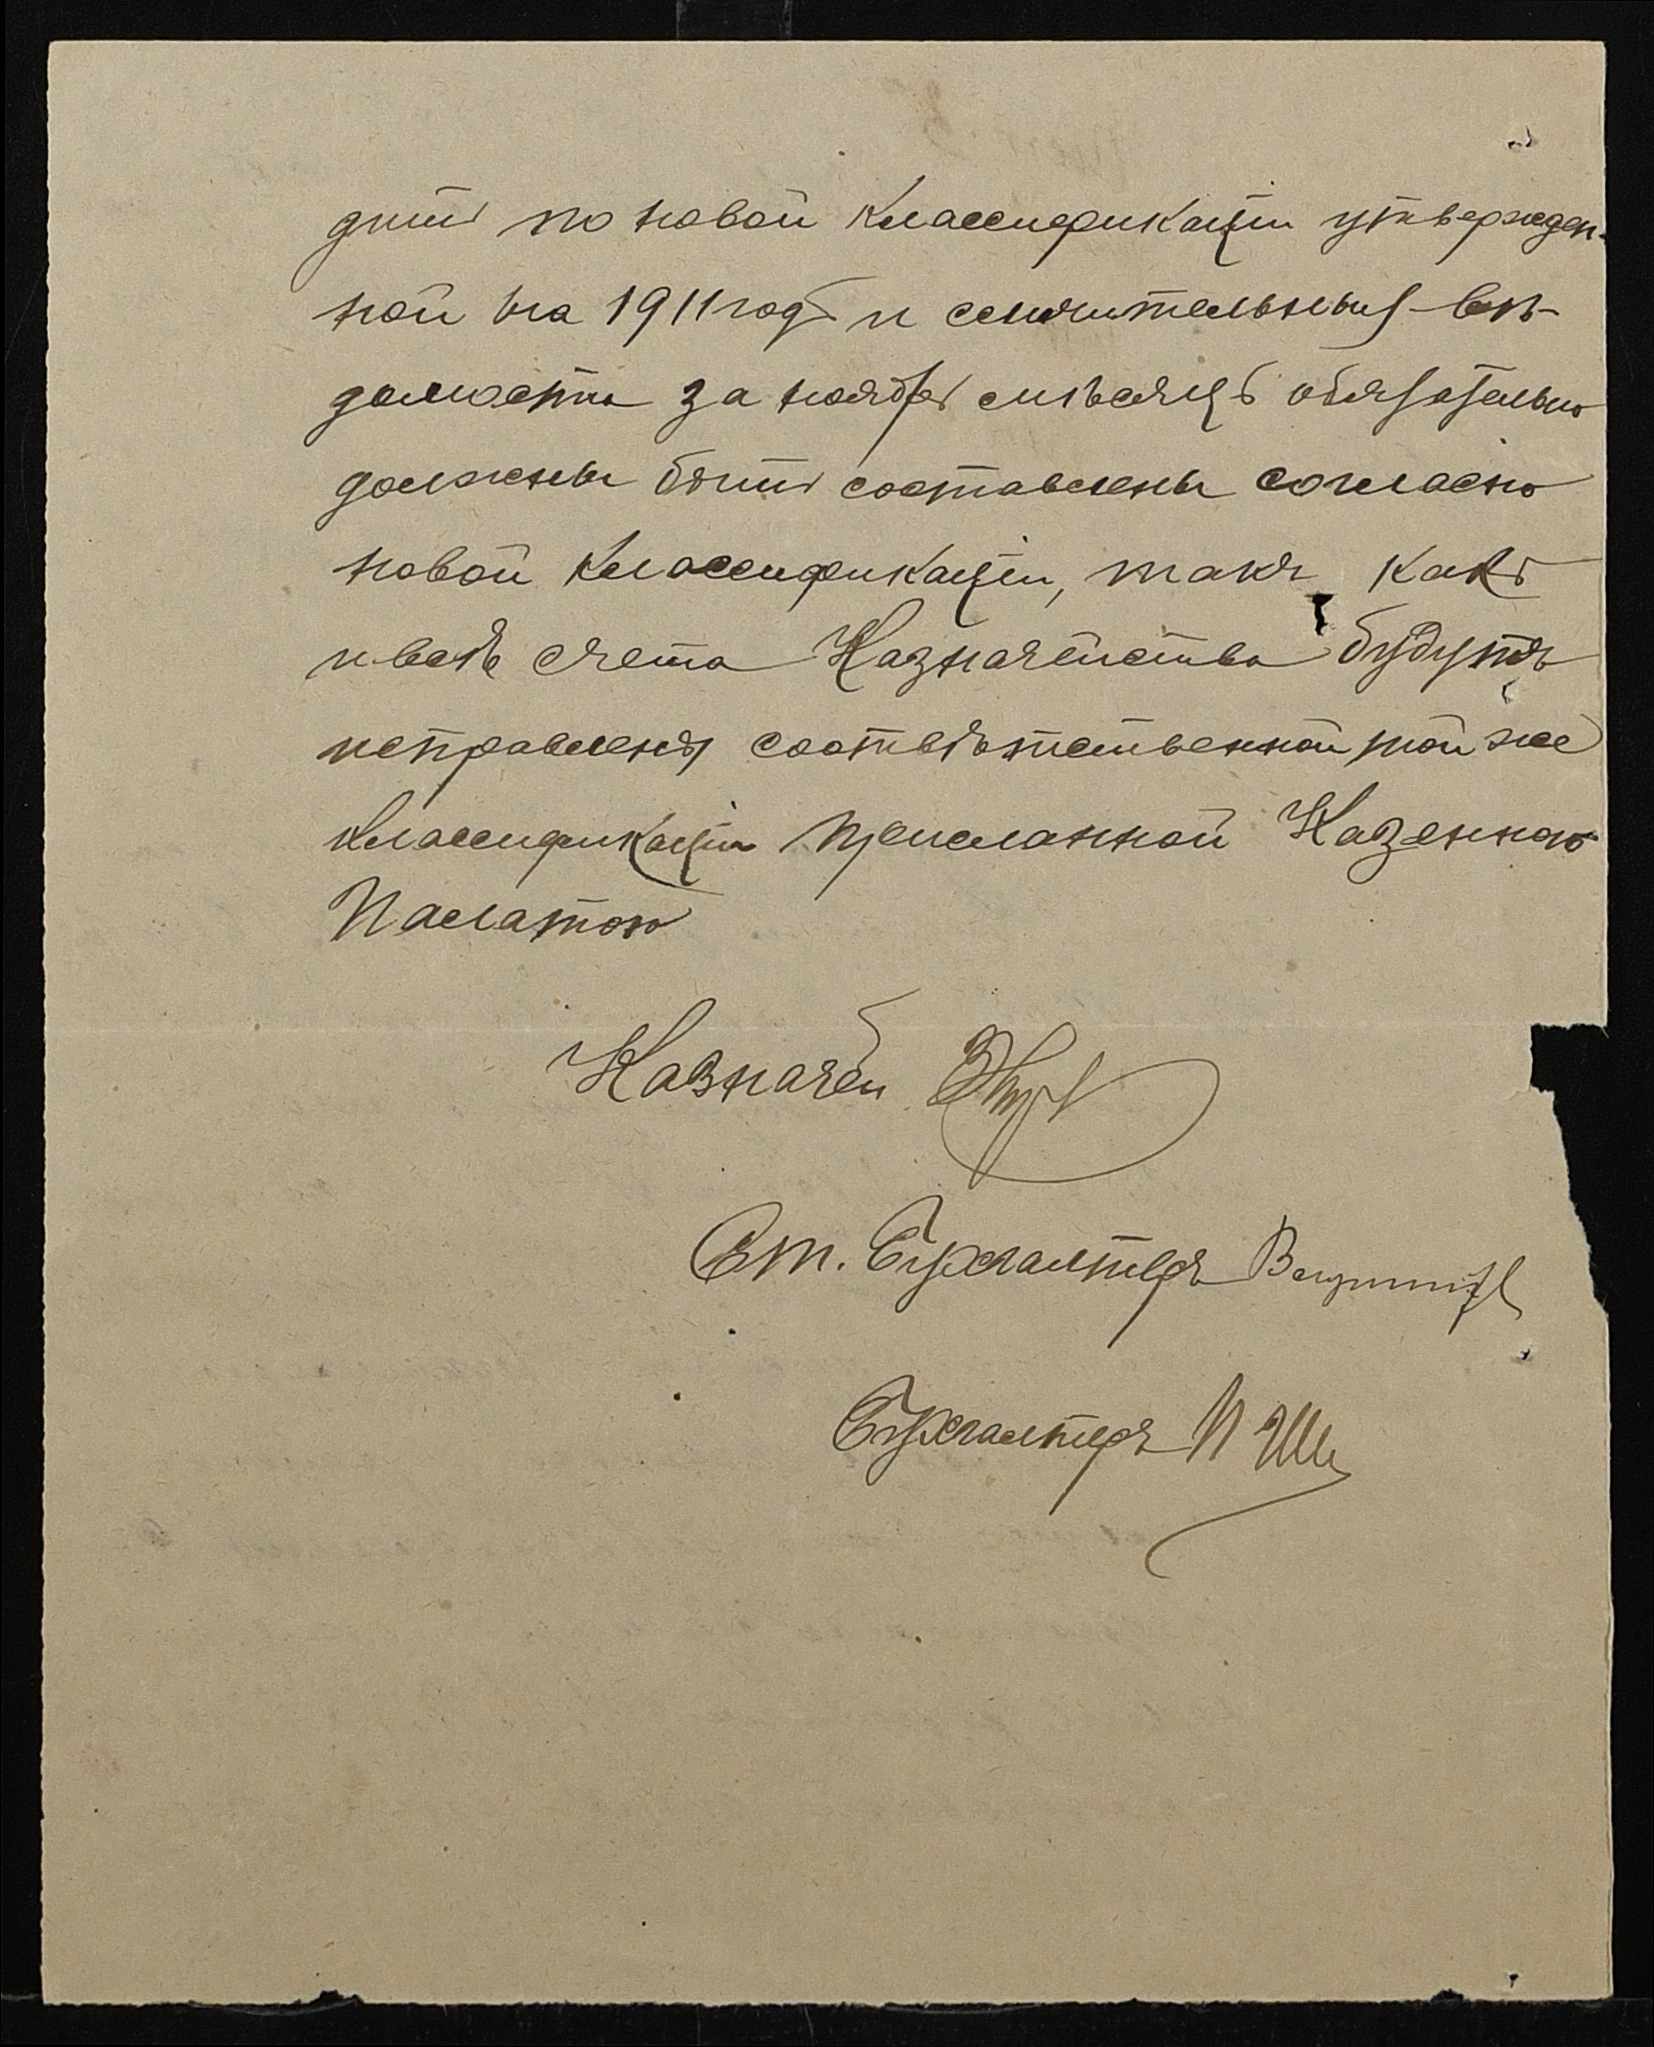 дить по новой классификаціи утвержден-
ной на 1911 годъ и сличительныя вѣ-
домости за ноябрь мѣсяцъ обязательно
должны быть составлены согласно
новой классификаціи, такъ какъ
и всѣ счета Казначейства будутъ
исправлены соотвѣтственной той же
классификаціи присланной Казенною
Палатою
Казначей
Ст. Бухгалтеръ
Бухгалтеръ